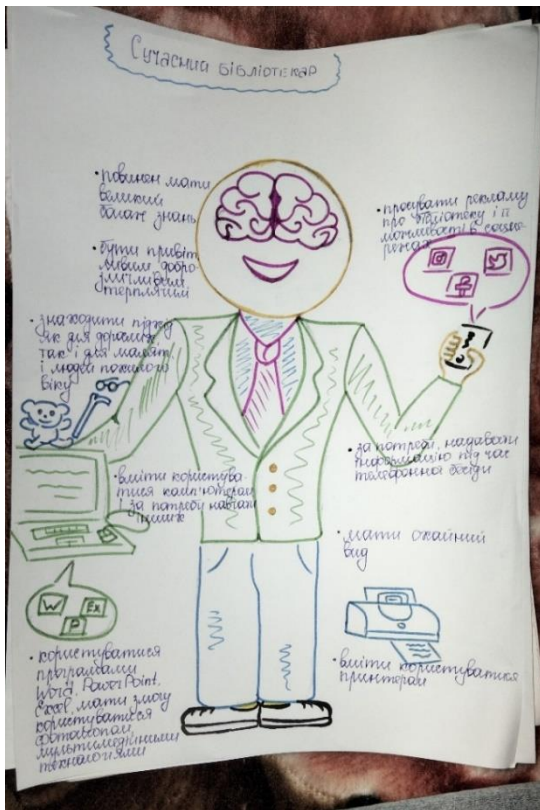 Сучасний бібліотекар
• повинен мати
великий
багаж знань
• бути привіт
ливим, добро-
зичливим,
терплячим
• знаходити підхід
як для дорослих
так і для малят,
і людей похилого
віку
• вміти користува-
тися комп'ютером
і за потреби навчати
інших
W Ex
P
• користуватися
програмами
Word, PowerPoint,
Excel, мати змогу
користуватися
мультимедійними
технологіями
• просувати рекламу
про бібліотеку і її
можливості в соцме-
режах
• за потреби, надавати
інформацію під час
телефонної бесіди
• мати охайний
вид
• вміти користуватися
принтером